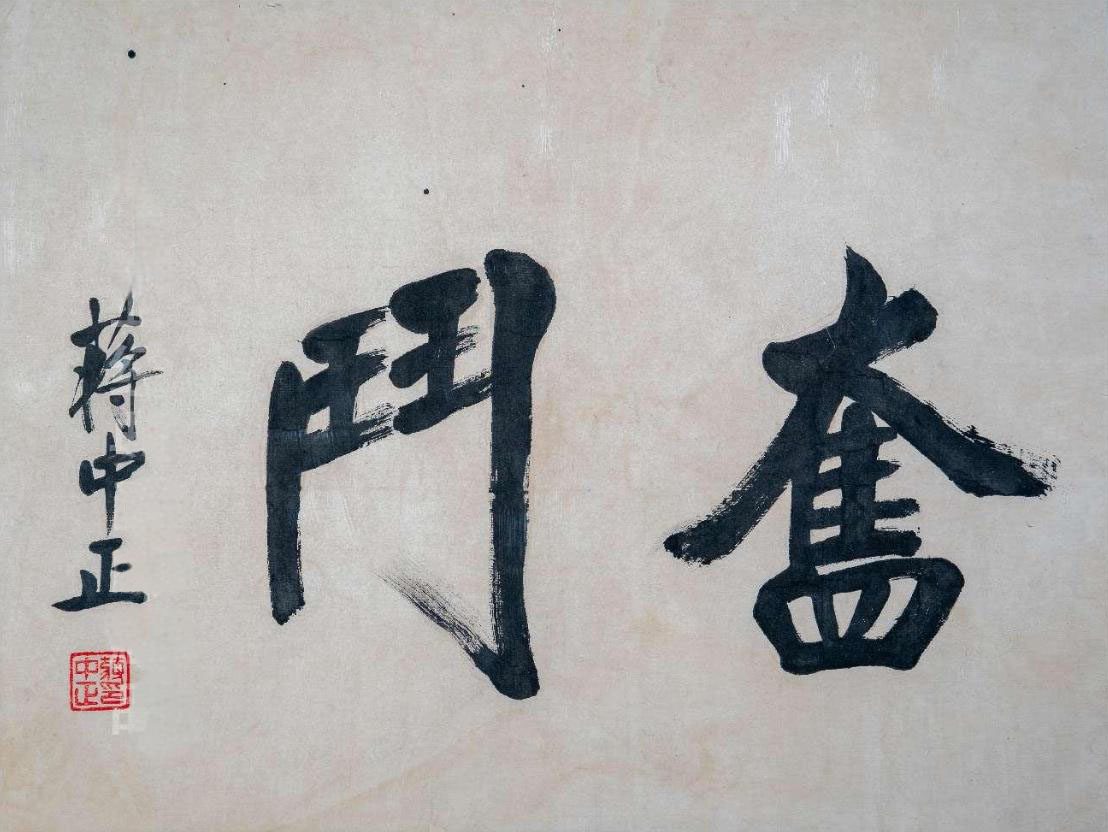 奮鬥
蔣中正
蔣印中正